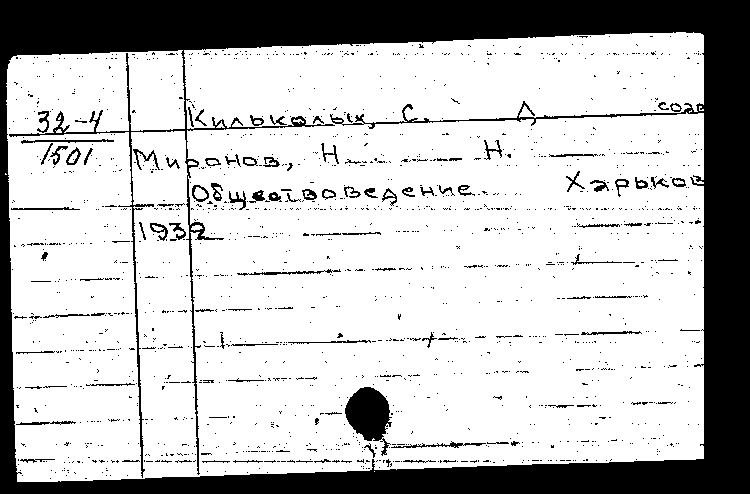 32-4
1501
Кильколых, С. Д. соав
Миронов, Н. Н.
Обществоведение. Харьков
1932